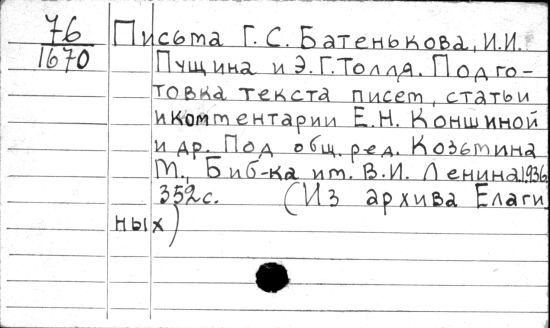 76
1670
Письма Г.С. Батенькова, И.И.
Пущина и Э.Г. Толля. Подго-
товка текста писем, статьи
и комментарии Е.Н. Коншиной
и др. Под общ. ред. Козьмина
М., Биб-ка им. В.И. Ленина, 1936
352 с. (Из архива Елаги
ных)